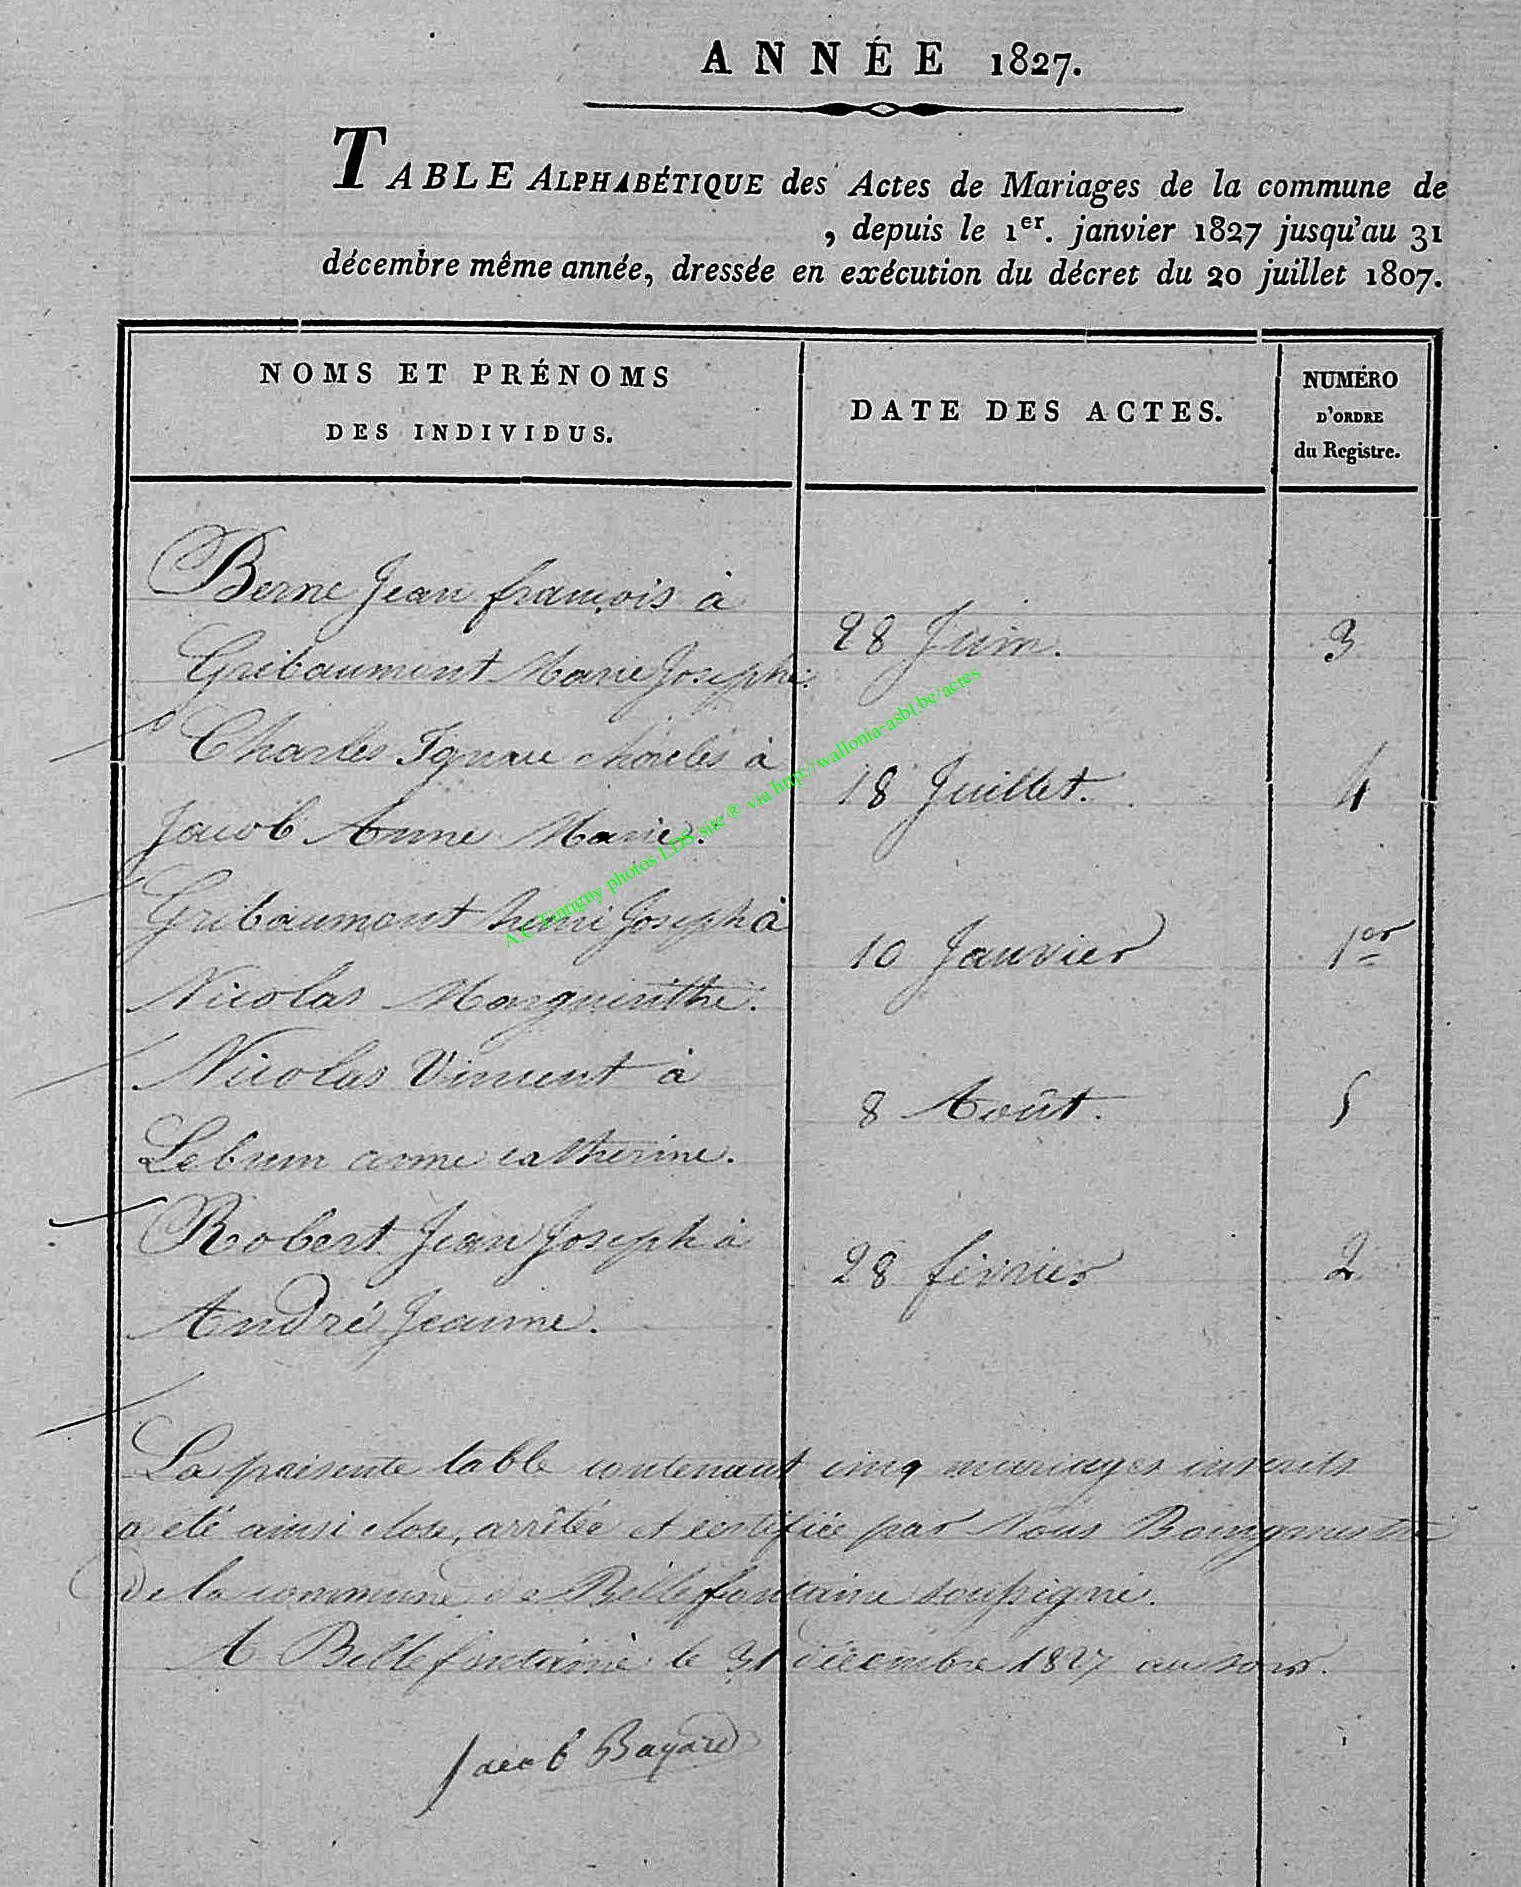 ANNÉE 1827.
TABLE ALPHABÉTIQUE des Actes de Mariages de la commune de
, depuis le 1er. janvier 1827 jusqu'au 31
décembre même année, dressée en exécution du décret du 20 juillet 1807.
NOMS ET PRÉNOMS
DES INDIVIDUS.
DATE DES ACTES.
NUMÉRO
D'ORDRE
du Registre.
Berne Jean françois à
28 Juin. 3
Gribaumont Marie Josephe.
Charles Ignace à
18 Juillet. 4
Jacob Anne Marie.
Gribaumont henri Joseph à
10 Janvier 1er
Nicolas
Nicolas Vincent à
8 Août. 5
Lebrun anne catherine.
Robert Jean Joseph à
28 février 2
André Jeanne.
La présente table contenant cinq mariages inscrits
a été ainsi close, arrêtée et certifiée par Nous Bourgmestre
de la commune de Bellefontaine soussigné.
A Bellefontaine le 31 décembre 1827 au soir.
Jacob Bayard
A.C Tintigny photos LDS site ® via http://wallonia-asbl.be/actes